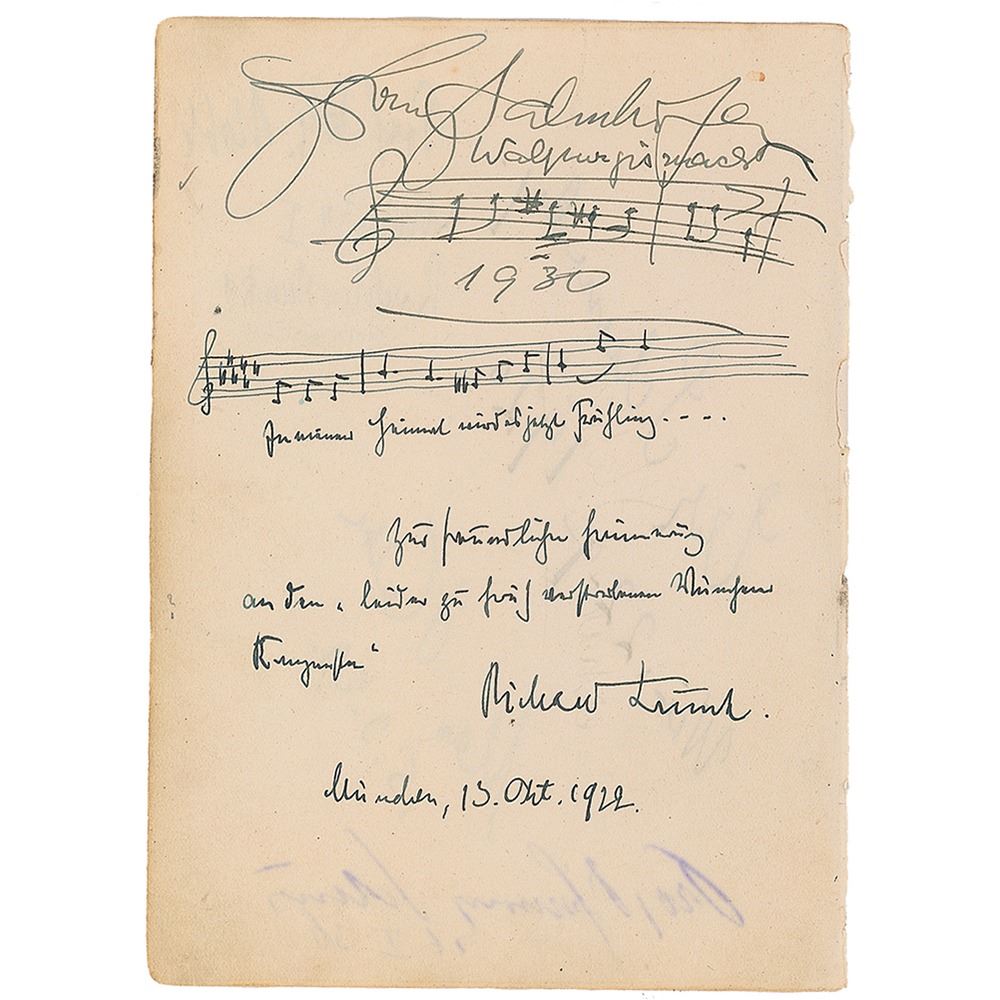 Franz Salmhofer
Walpurgisnacht
1930
In meiner Heimat wird es jetzt Frühling. - - - .
Zur freundlichen Erinnerung
an den „leider zu früh verstorbenen Münchener
Komponisten“
Richard Trunk.
München, 13. Okt. 1922.